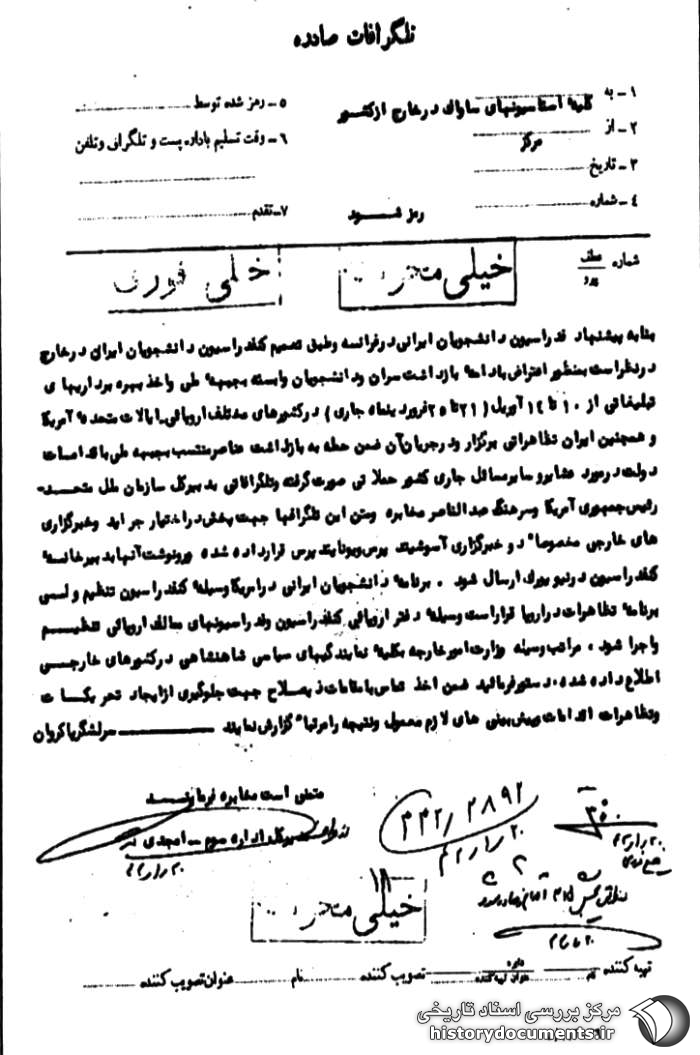 تلگرافات صادره
۱ - به کلیه استاسیونهای ساواک در خارج از کشور
۲ - از مرکز
۳ - تاریخ
۴ - شماره
۵ - رمز شده توسط
۶ - وقت تسلیم باداره پست و تلگراف و تلفن
۷ - تقدم
رمز شود
شماره عطف پیرو
خیلی محرمانه
خیلی فوری
بنا به پیشنهاد فدراسیون دانشجویان ایرانی در فرانسه و طبق تصمیم کنفدراسیون دانشجویان ایران در خارج
در نظر است بمنظور اعتراض بادامه بازداشت سران و دانشجویان وابسته بجبهه ملی و اخذ بهره برداریهای
تبلیغاتی از ۱۰ تا ۱۴ آوریل (۲۱ تا ۲۵ فروردینماه جاری) در کشورهای مختلف اروپائی ـ ایالات متحده آمریکا
و همچنین ایران تظاهراتی برگزار و در جریان آن ضمن حمله به بازداشت عناصر منتسب بجبهه ملی باقدامات
دولت در مورد عشایر و سایر مسائل جاری کشور حملاتی صورت گرفته و تلگرافاتی به دبیرکل سازمان ملل متحد ـ
رئیس جمهوری آمریکا و سرهنگ عبدالناصر مخابره و متن این تلگرافها جهت پخش در اختیار جراید و خبرگزاری
های خارجی مخصوصاً دو خبرگزاری آسوشیتد پرس و یونایتد پرس قرار داده شده و رونوشت آنها بدبیرخانه
کنفدراسیون در نیویورک ارسال شود . برنامه دانشجویان ایرانی در امریکا وسیله کنفدراسیون تنظیم ولی
برنامه تظاهرات در اروپا قرار است وسیله دفتر اروپائی کنفدراسیون و فدراسیونهای ممالک اروپائی تنظیم
و اجرا شود . مراتب وسیله وزارت امور خارجه بکلیه نمایندگیهای سیاسی شاهنشاهی در کشورهای خارجی
اطلاع داده شده . دستور فرمائید ضمن اخذ تماس با مقامات ذیصلاح جهت جلوگیری از ایجاد تحریکات
و تظاهرات اقدامات و پیش بینی های لازم معمول و نتیجه را مرتباً گزارش نمایند ـ سرلشگر پاکروان
متمنی است مخابره فرمایند
مدیرکل اداره سوم ـ امجدی
۴۲/۱/۲۰
۳۴۲/۲۸۹۲
۴۲/۱/۲۰
۳۵۰
۴۲/۱/۲۰
خیلی محرمانه
تهیه کننده نام
عنوان تهیه کننده
تصویب کننده نام
عنوان تصویب کننده
مرکز بررسی اسناد تاریخی
historydocuments.ir